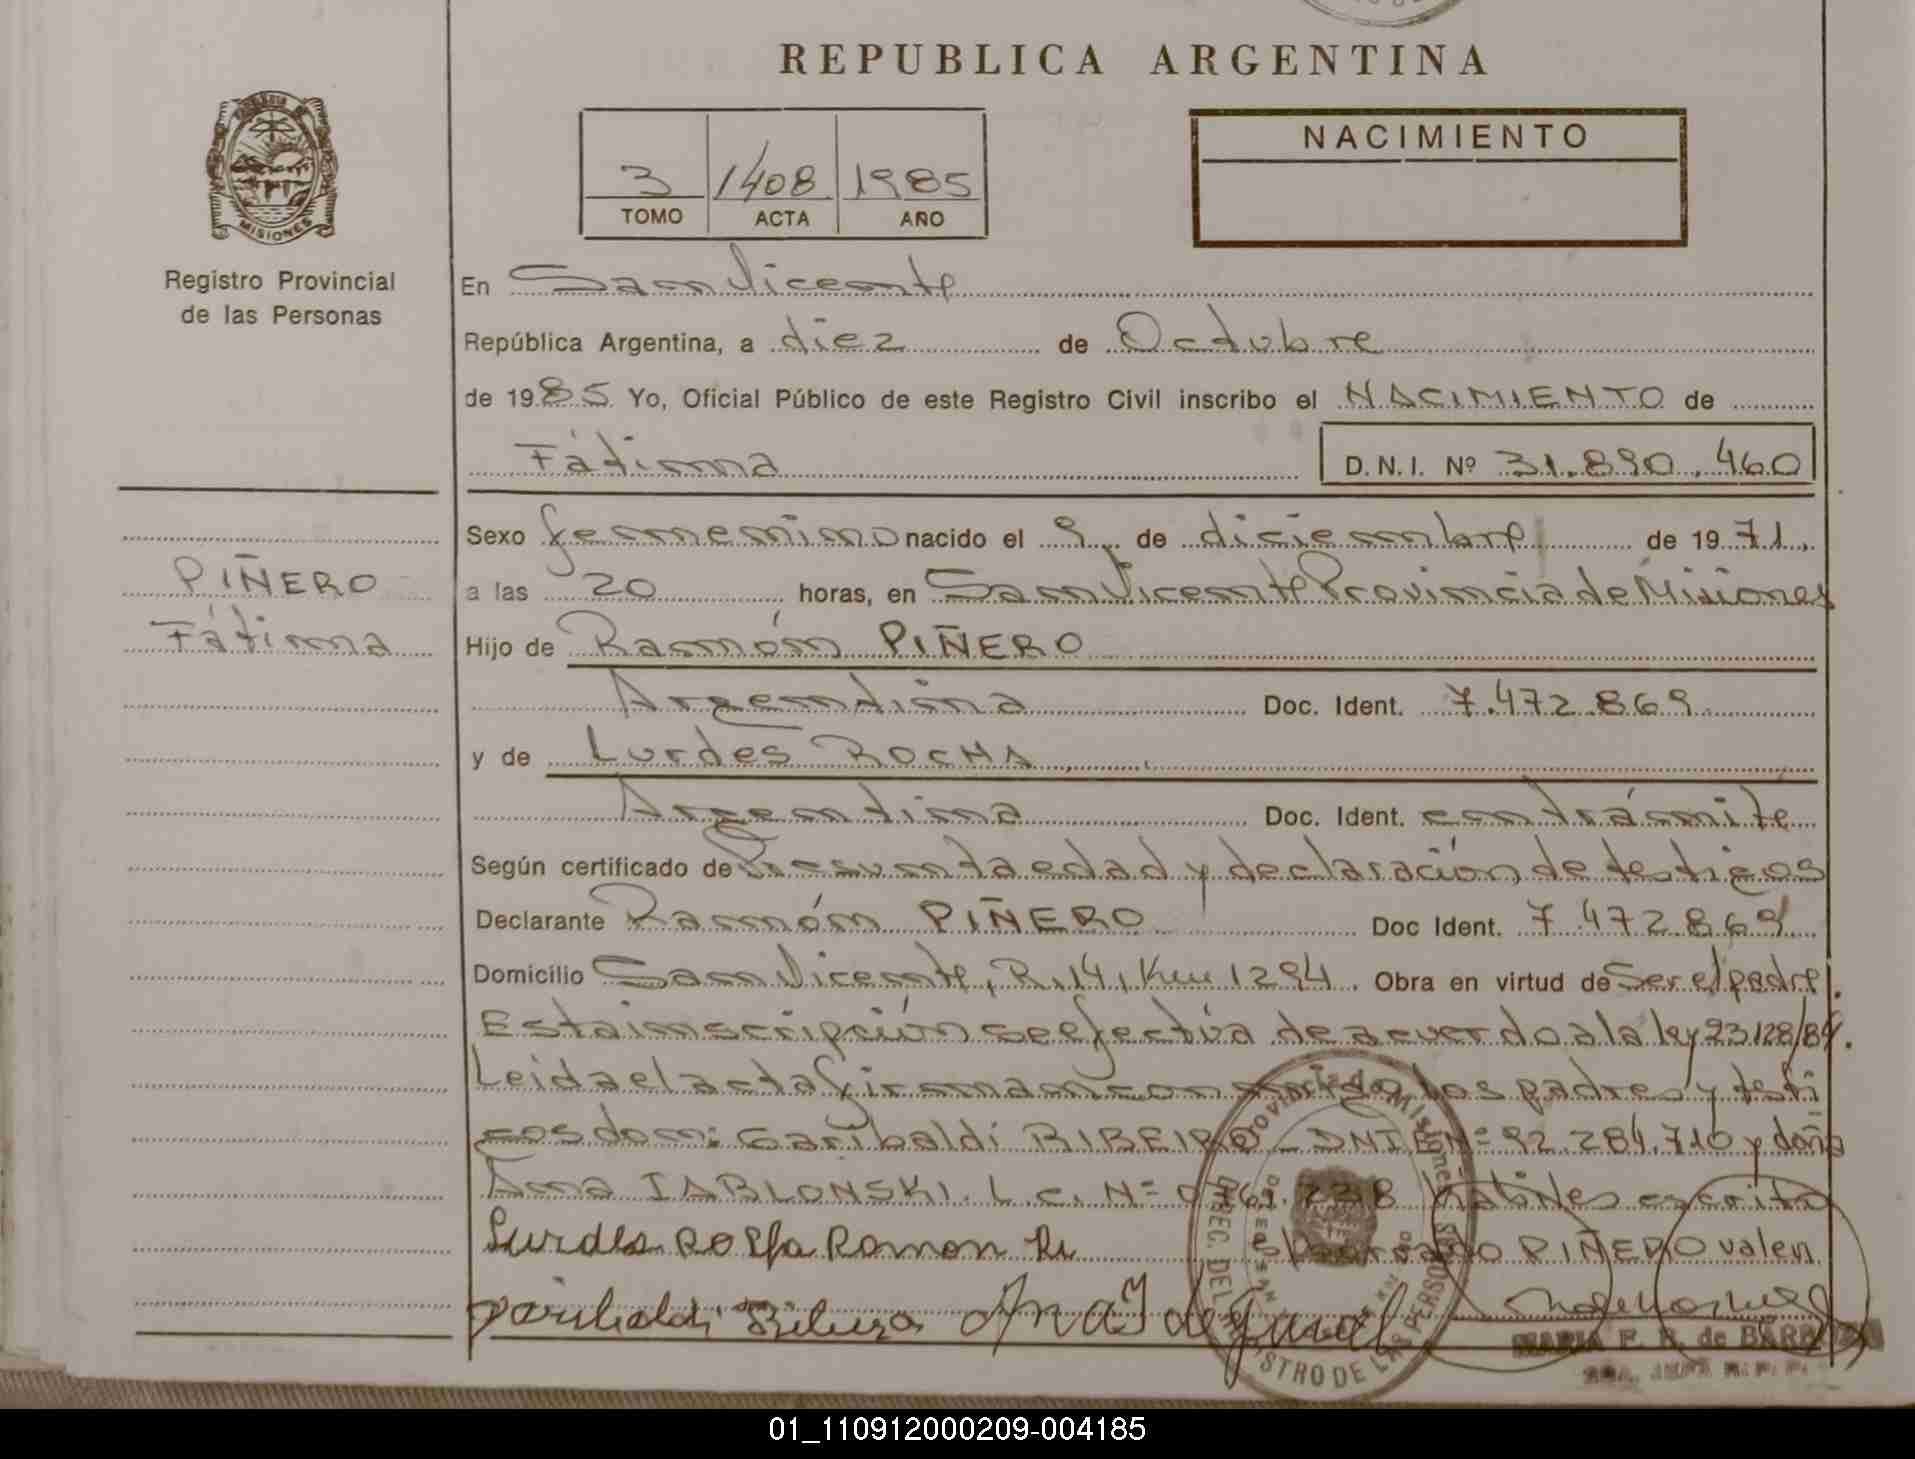 REPUBLICA ARGENTINA
MISIONES
Registro Provincial
de las Personas
3 1408 1985
TOMO ACTA AÑO
NACIMIENTO
En San Vicente
República Argentina, a diez de Octubre
de 1985 Yo, Oficial Público de este Registro Civil inscribo el NACIMIENTO de
Fátima D.N.I. Nº 31.890.460
Sexo femenino nacido el 9 de diciembre de 1971.
PIÑERO
Fátima
a las 20 horas, en San Vicente Provincia de Misiones
Hijo de Ramón PIÑERO
Argentina Doc. Ident. 7.472.869
y de Lurdes ROCHA
Argentina Doc. Ident. en trámite
Según certificado de Presunta edad y declaración de testigos
Declarante Ramón PIÑERO Doc Ident. 7.472.869
Domicilio San Vicente, R.14, Km 1294. Obra en virtud de Ser el padre.
Esta inscripción se efectúa de acuerdo a la ley 23.128/84.
Leida el acta firman conmigo los padres y testi
gos don: Garibaldi RIBEIRO DNI Nº 92.284.710 y doña
Ana IABLONSKI. L.C. Nº
Lurdes Ramon
PIÑERO valen
Ana
Provincia de Misiones
MARIA E. R. de
01_110912000209-004185